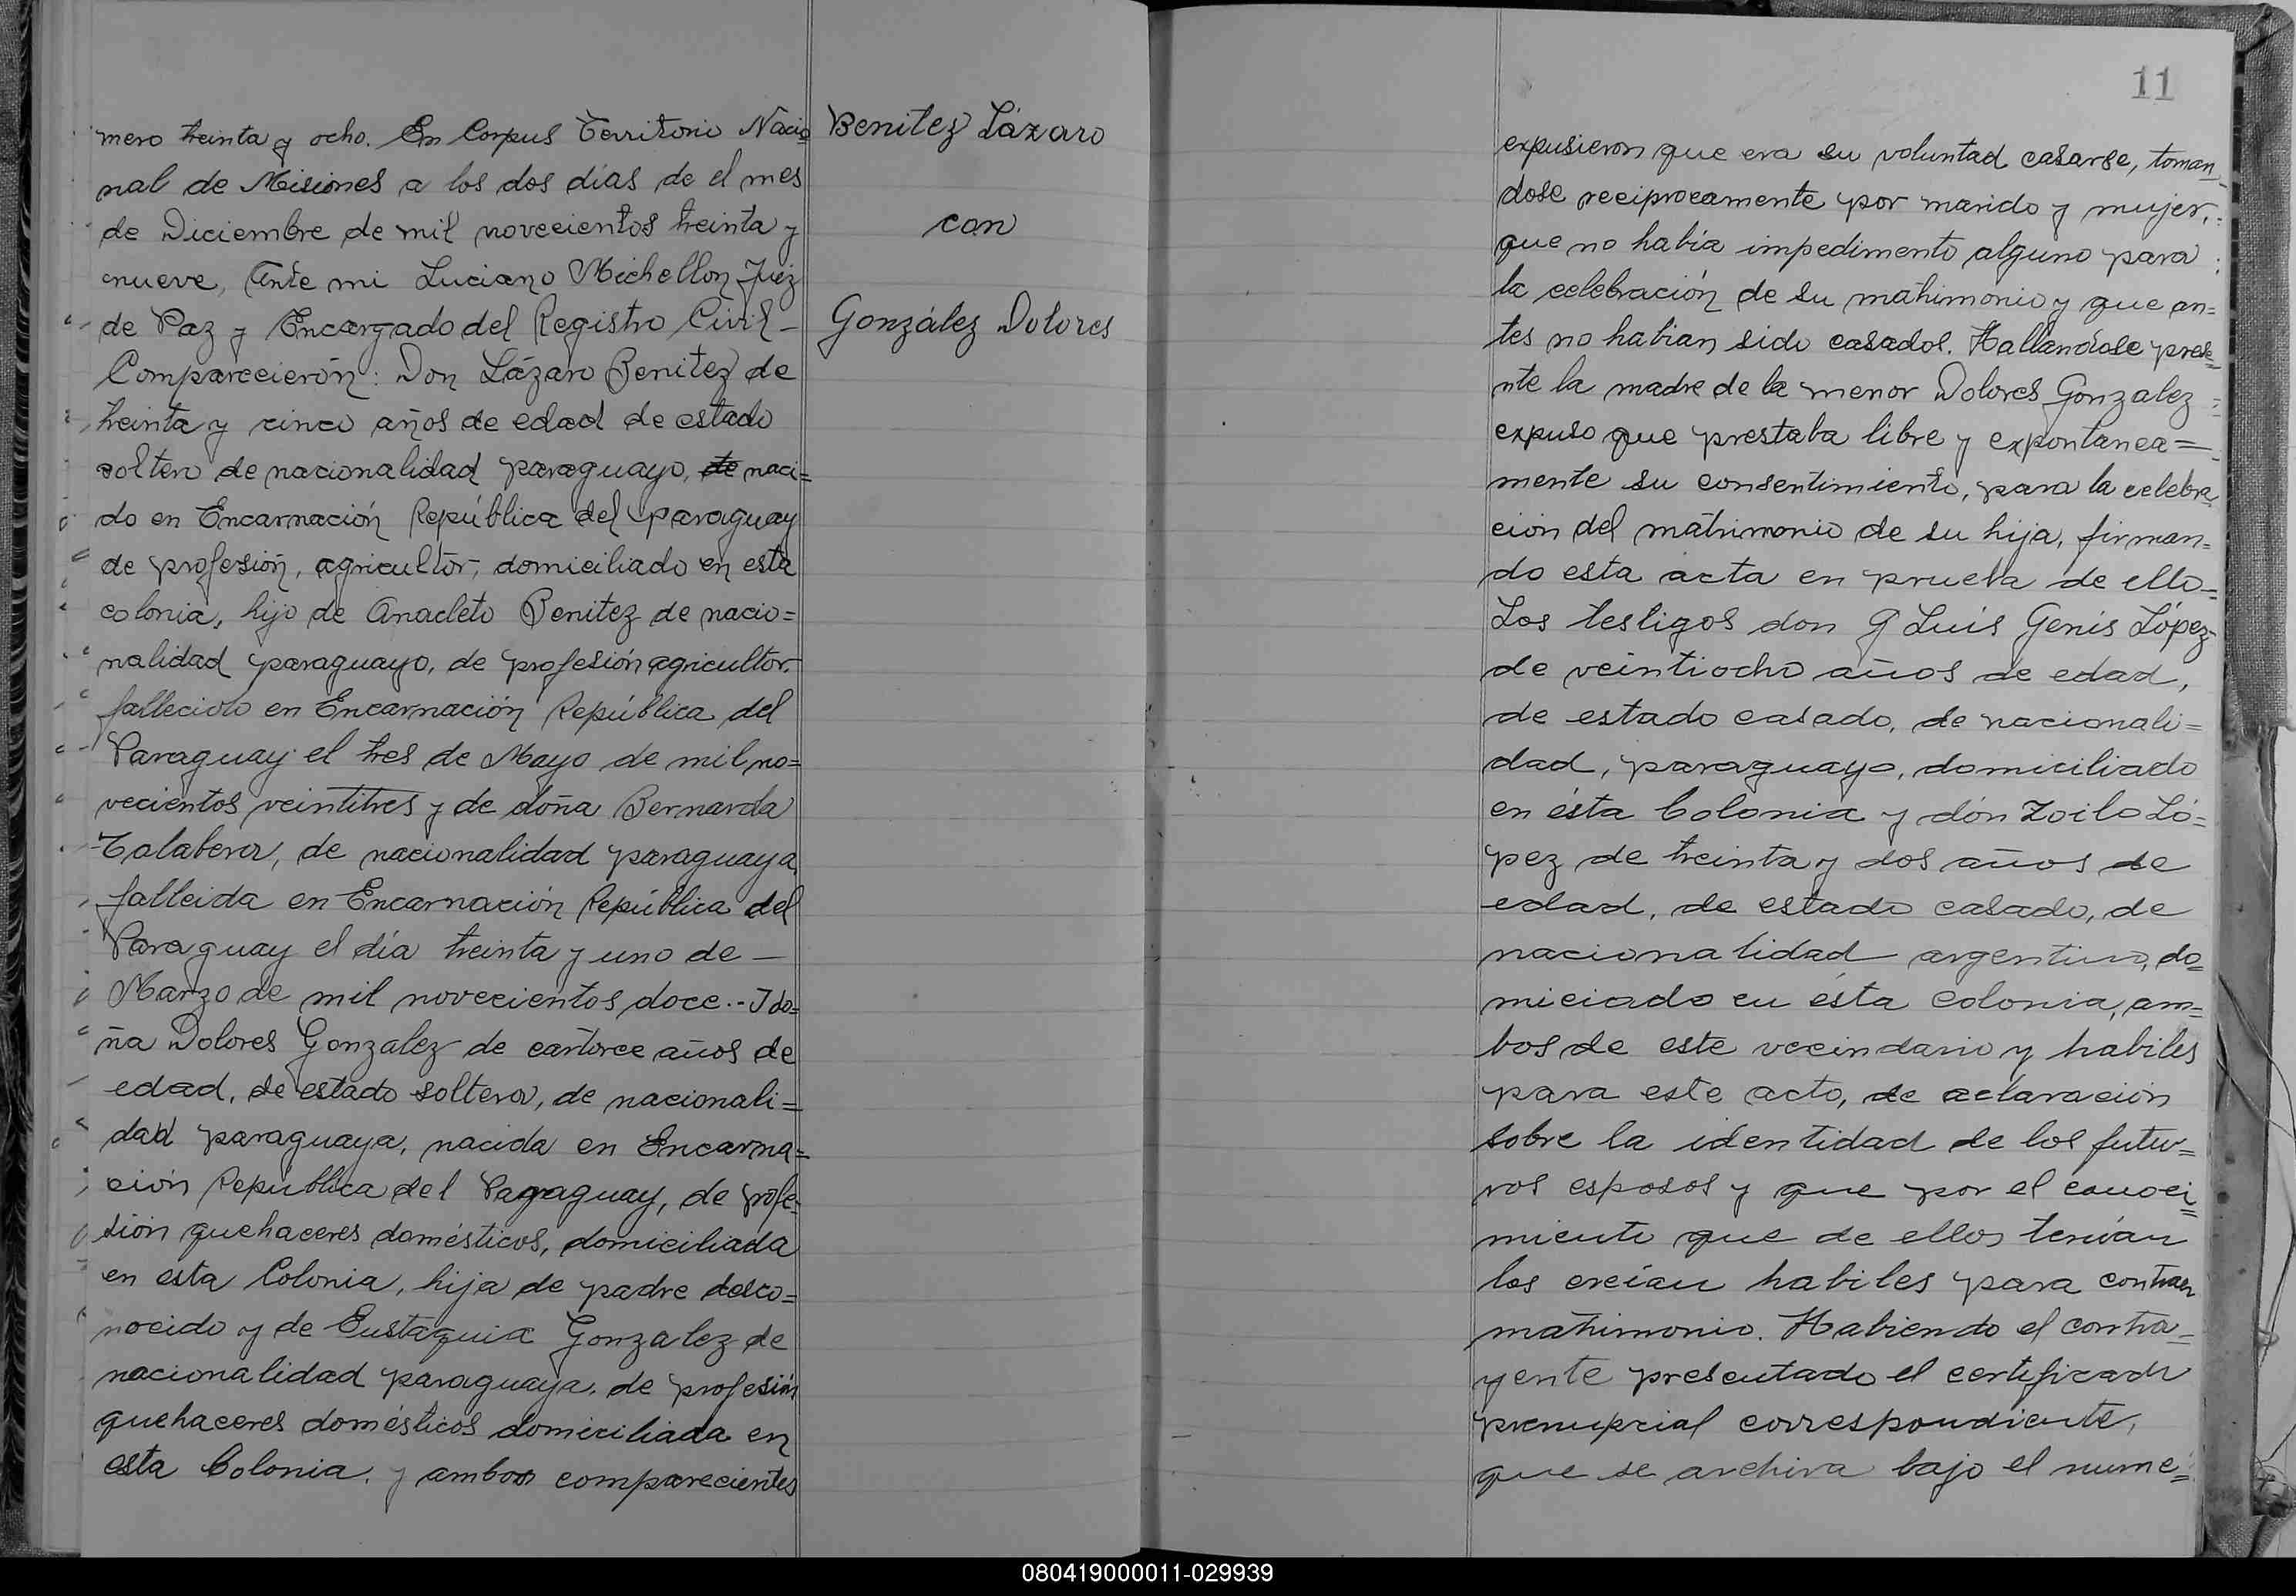 mero treinta y ocho. En Corpus Territorio Nacio=
nal de Misiones a los dos días de el mes
de Diciembre de mil novecientos treinta y
nueve, Ante mi Luciano Michellon Juez
de Paz y Encargado del Registro Civil-
Comparecierón: Don Lázaro Benitez de
treinta y cinco años de edad de estado
soltero de nacionalidad paraguayo, de naci=
do en Encarnación República del paraguay
de profesión, agricultor, domiciliado en esta
colonia, hijo de Anacleto Benitez de nacio=
nalidad paraguayo, de profesión agricultor.
fallecido en Encarnación República del
Paraguay el tres de Mayo de mil no=
vecientos veintitres y de doña Bernarda
Talabera, de nacionalidad paraguaya
falleida en Encarnación República del
Paraguay el día treinta y uno de —
Marzo de mil novecientos doce.- I do=
ña Dolores Gonzalez de cartorce años de
edad, de estado soltera, de nacionali=
dad paraguaya, nacida en Encarna=
ción República del Paraguay, de profe=
sión quehaceres domésticos, domiciliada
en ésta Colonia, hija de padre desco=
nocido y de Eustaquia Gonzalez de
nacionalidad paraguaya, de profesión
quehaceres domésticos domiciliada en
esta Colonia, y ambos comparecientes
Benitez Lázaro
con
González Dolores
11
expusieron que era su voluntad casarse, toman=
dose reciprocamente por marido y mujer,
que no había impedimento alguno para
la celebración de su matrimonio y que an=
tes no habian sido casados. Hallandose prese=
nte la madre de la menor Dolores Gonzalez
expuso que prestaba libre y expontanea=
mente su consentimiento, para la celebra
ción del matrimonio de su hija, firman=
do esta acta en prueba de ello=
Los testigos don G Luis Genis López
de veintiocho años de edad,
de estado casado, de nacionali=
dad, paraguayo, domiciliado
en ésta Colonia y dón Zoilo Ló=
pez de treinta y dos años de
edad, de estado casado, de
nacionalidad argentino, do=
miciado en ésta colonia, am=
bos de este vecindario y habiles
para este acto, de aclaración
sobre la identidad de los futu=
ros esposos y que por el conoci=
miento que de ellos tenían
los creían habiles para contraer
matrimonio. Habiendo el contra=
yente presentado el certificado
prenupcial correspondiente,
que se archiva bajo el nume=
080419000011-029939